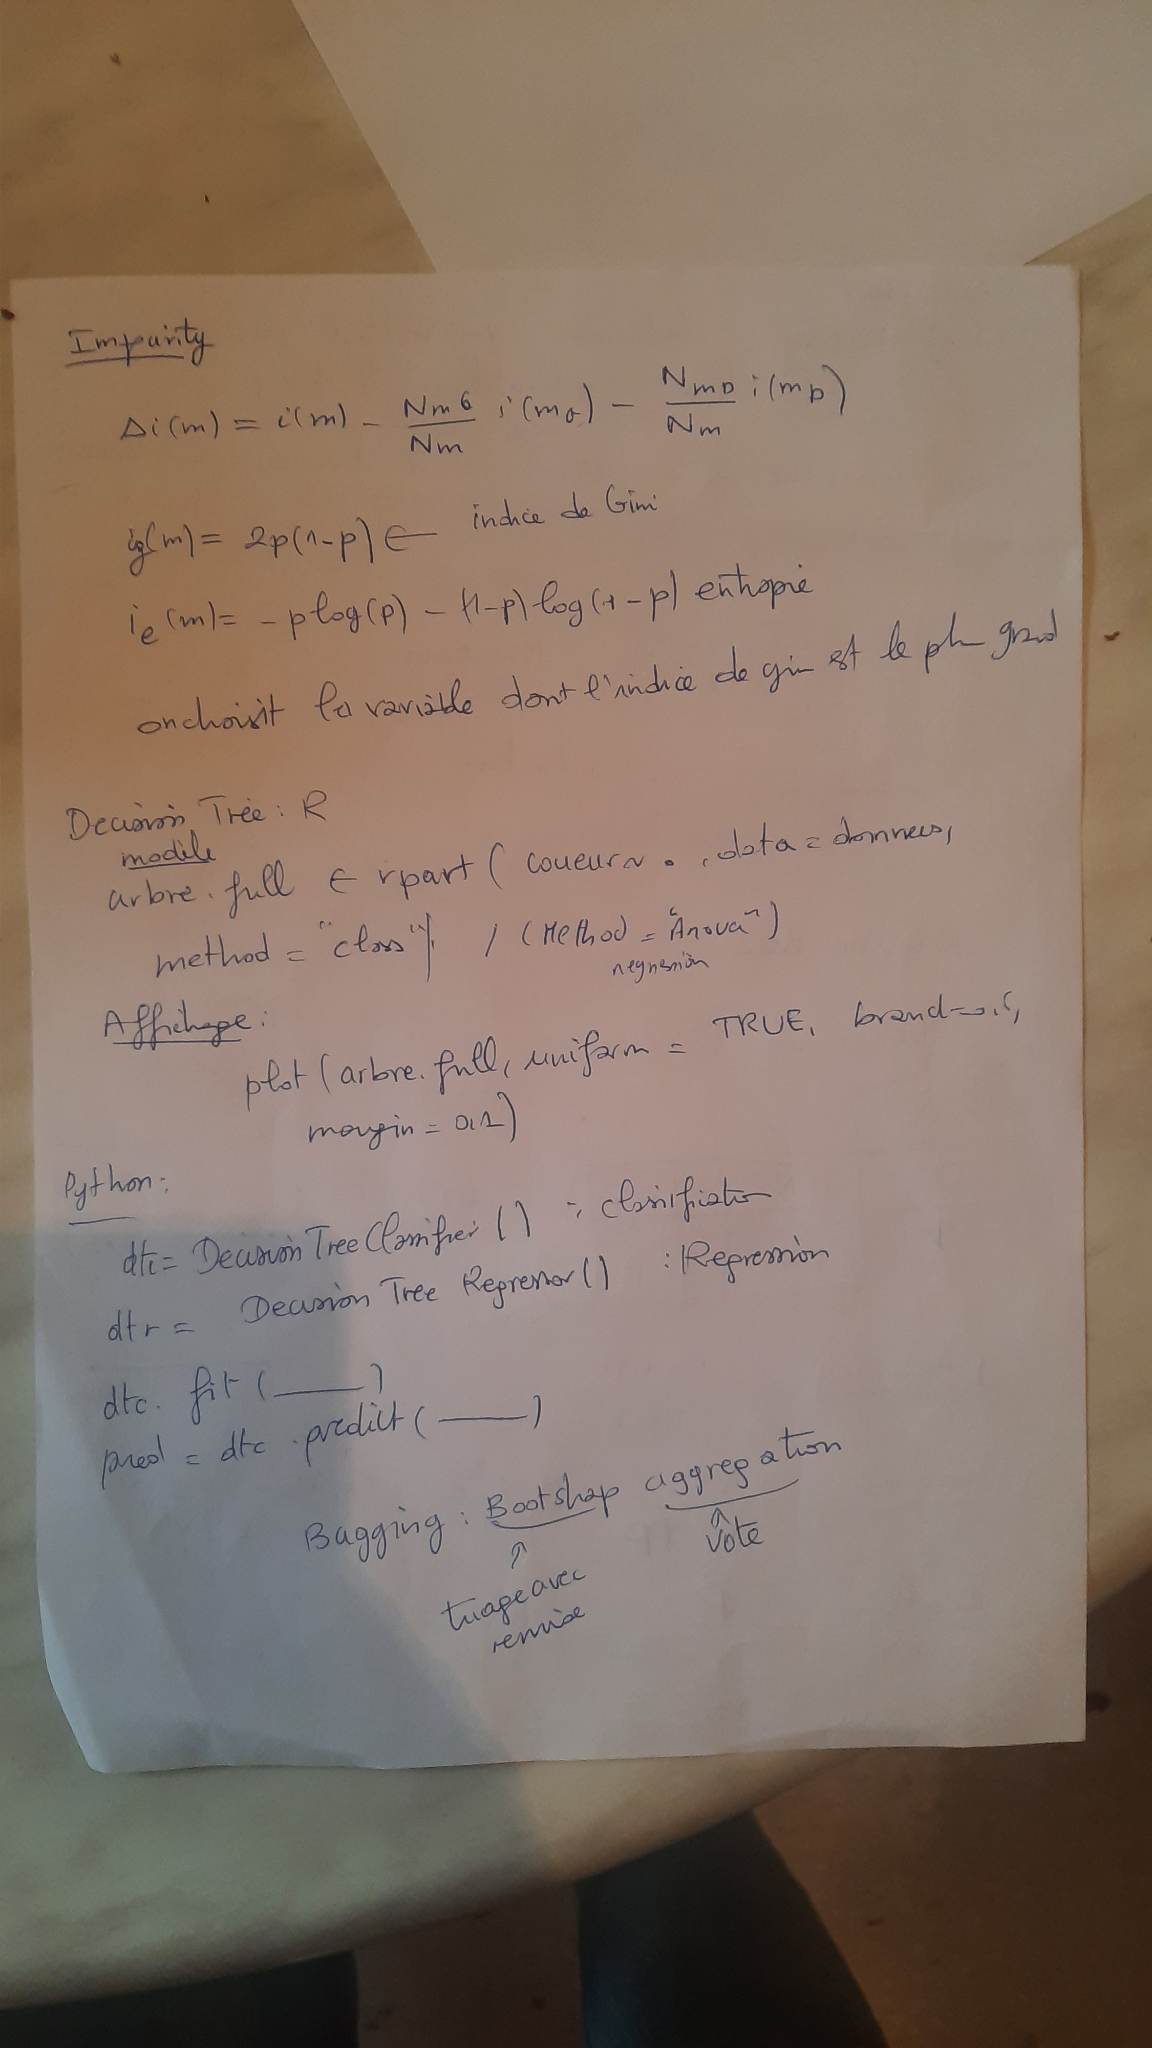 Impurity
Δi(m) = i(m) - NmG/Nm i(mG) - NmD/Nm i(mD)
ig(m) = 2p(1-p) ← indice de Gini
ie(m) = -plog(p) - (1-p)log(1-p) entropie
on choisit la variable dont l'indice de gini est le plus grand
Decision Tree : R
modèle
arbre.full ← rpart ( coueur ~ . , data = donnees,
method = "class") / (Method = "Anova")
regression
Affichage :
plot (arbre.full, uniform = TRUE, brand=0.5,
margin = 0.1)
Python :
dtc = DecisionTreeClassifier () : classification
dtr = Decision Tree Regressor () : Regression
dtc. fit ( ___ )
pred = dtc .predict ( ___ )
Bagging : Bootstrap aggregation
↑ ↑
tirage avec vote
remise